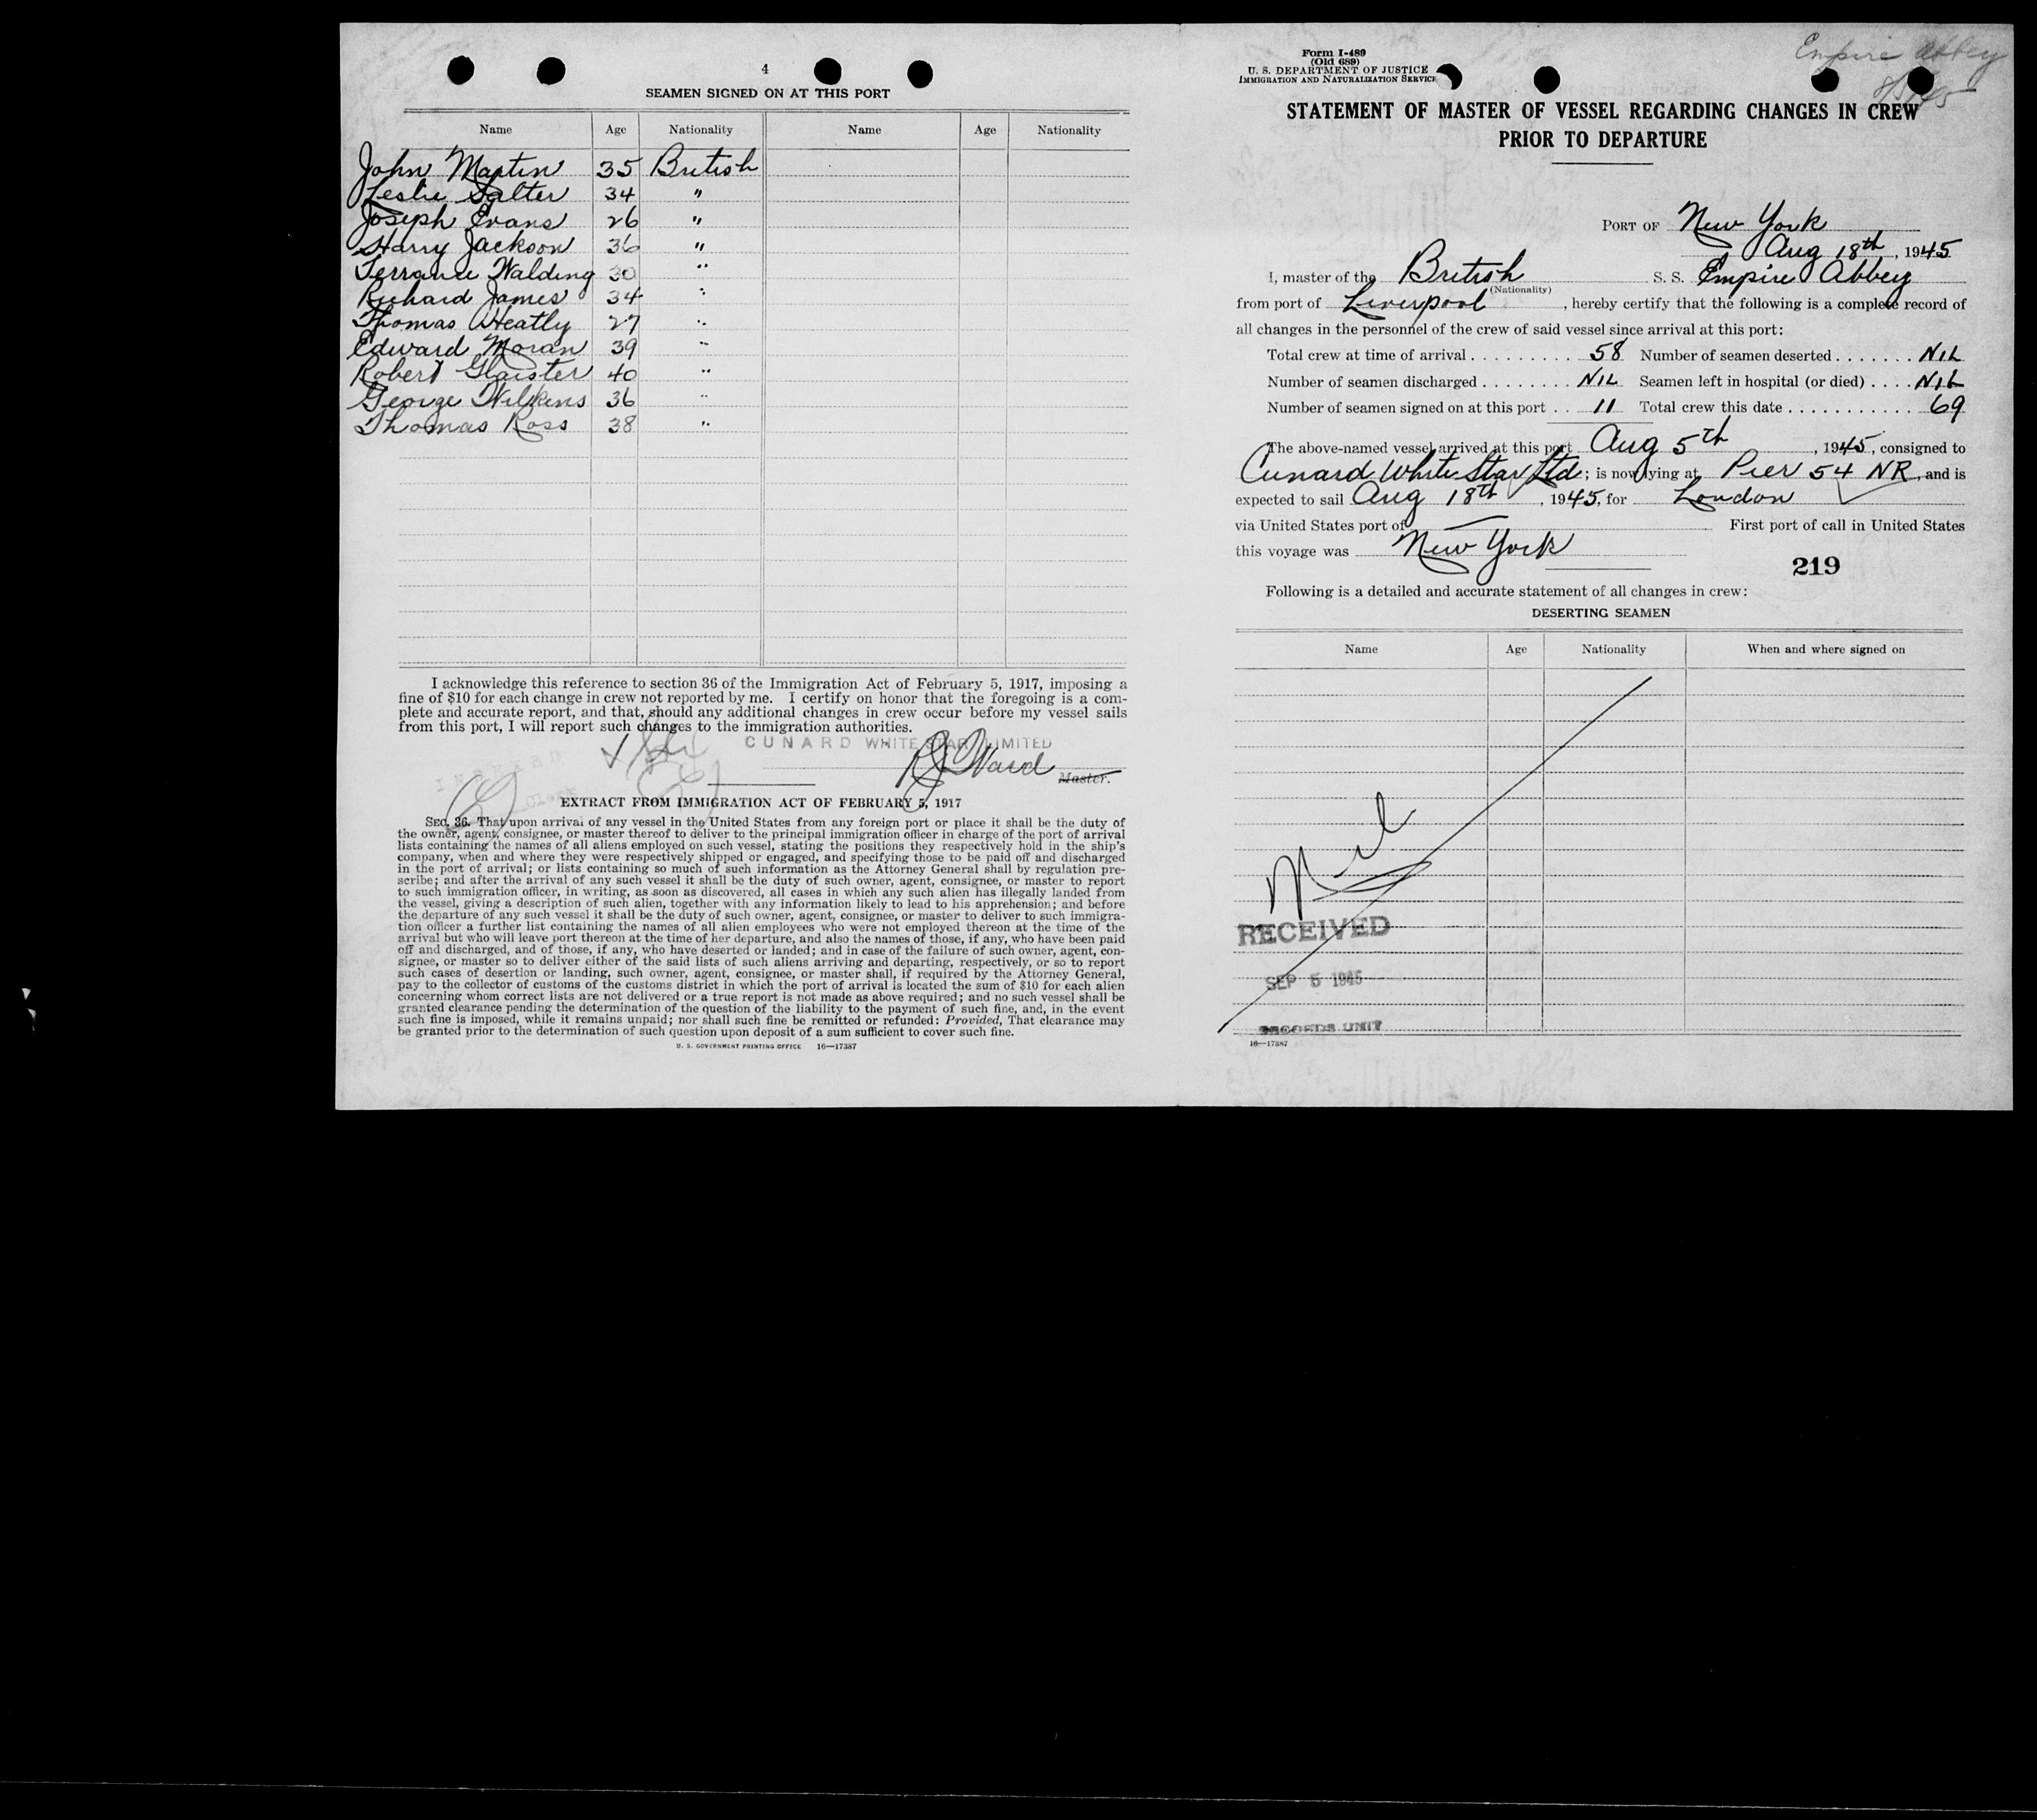 4
SEAMEN SIGNED ON AT THIS PORT
Name Age Nationality Name Age Nationality
John Martin 35 British
Leslie Salter 34 "
Joseph Evans 26 "
Harry Jackson 36 "
Terrance Walding 30 "
Richard James 34 "
Thomas Wheatly 27 "
Edward Moran 39 "
Robert Glaister 40 "
George Wilkins 36 "
Thomas Ross 38 "
I acknowledge this reference to section 36 of the Immigration Act of February 5, 1917, imposing a
fine of $10 for each change in crew not reported by me. I certify on honor that the foregoing is a com-
plete and accurate report, and that, should any additional changes in crew occur before my vessel sails
from this port, I will report such changes to the immigration authorities.
CUNARD WHITE STAR LIMITED
INDEXED
Ward
Master.
Clerk
EXTRACT FROM IMMIGRATION ACT OF FEBRUARY 5, 1917
SEC. 36. That upon arrival of any vessel in the United States from any foreign port or place it shall be the duty of
the owner, agent, consignee, or master thereof to deliver to the principal immigration officer in charge of the port of arrival
lists containing the names of all aliens employed on such vessel, stating the positions they respectively hold in the ship's
company, when and where they were respectively shipped or engaged, and specifying those to be paid off and discharged
in the port of arrival; or lists containing so much of such information as the Attorney General shall by regulation pre-
scribe; and after the arrival of any such vessel it shall be the duty of such owner, agent, consignee, or master to report
to such immigration officer, in writing, as soon as discovered, all cases in which any such alien has illegally landed from
the vessel, giving a description of such alien, together with any information likely to lead to his apprehension; and before
the departure of any such vessel it shall be the duty of such owner, agent, consignee, or master to deliver to such immigra-
tion officer a further list containing the names of all alien employees who were not employed thereon at the time of the
arrival but who will leave port thereon at the time of her departure, and also the names of those, if any, who have been paid
off and discharged, and of those, if any, who have deserted or landed; and in case of the failure of such owner, agent, con-
signee, or master so to deliver either of the said lists of such aliens arriving and departing, respectively, or so to report
such cases of desertion or landing, such owner, agent, consignee, or master shall, if required by the Attorney General,
pay to the collector of customs of the customs district in which the port of arrival is located the sum of $10 for each alien
concerning whom correct lists are not delivered or a true report is not made as above required; and no such vessel shall be
granted clearance pending the determination of the question of the liability to the payment of such fine, and, in the event
such fine is imposed, while it remains unpaid; nor shall such fine be remitted or refunded: Provided, That clearance may
be granted prior to the determination of such question upon deposit of a sum sufficient to cover such fine.
U. S. GOVERNMENT PRINTING OFFICE 16—17387
Form I-489
(Old 689)
U. S. DEPARTMENT OF JUSTICE
IMMIGRATION AND NATURALIZATION SERVICE
Empire Abbey
8/5/45
STATEMENT OF MASTER OF VESSEL REGARDING CHANGES IN CREW
PRIOR TO DEPARTURE
PORT OF New York
Aug 18th, 1945
I, master of the British S. S. Empire Abbey
(Nationality)
from port of Liverpool, hereby certify that the following is a complete record of
all changes in the personnel of the crew of said vessel since arrival at this port:
Total crew at time of arrival . . . . . . . . . 58 Number of seamen deserted . . . . . . . NIL
Number of seamen discharged . . . . . . . NIL Seamen left in hospital (or died) . . . . NIL
Number of seamen signed on at this port . . 11 Total crew this date . . . . . . . . . . . . 69
The above-named vessel arrived at this port Aug 5th, 1945, consigned to
Cunard White Star Ltd; is now lying at Pier 54 NR, and is
expected to sail Aug 18th, 1945, for London
via United States port of — First port of call in United States
this voyage was New York
219
Following is a detailed and accurate statement of all changes in crew:
DESERTING SEAMEN
Name Age Nationality When and where signed on
Nil
RECEIVED
SEP 5 1945
RECORDS UNIT
16—17387